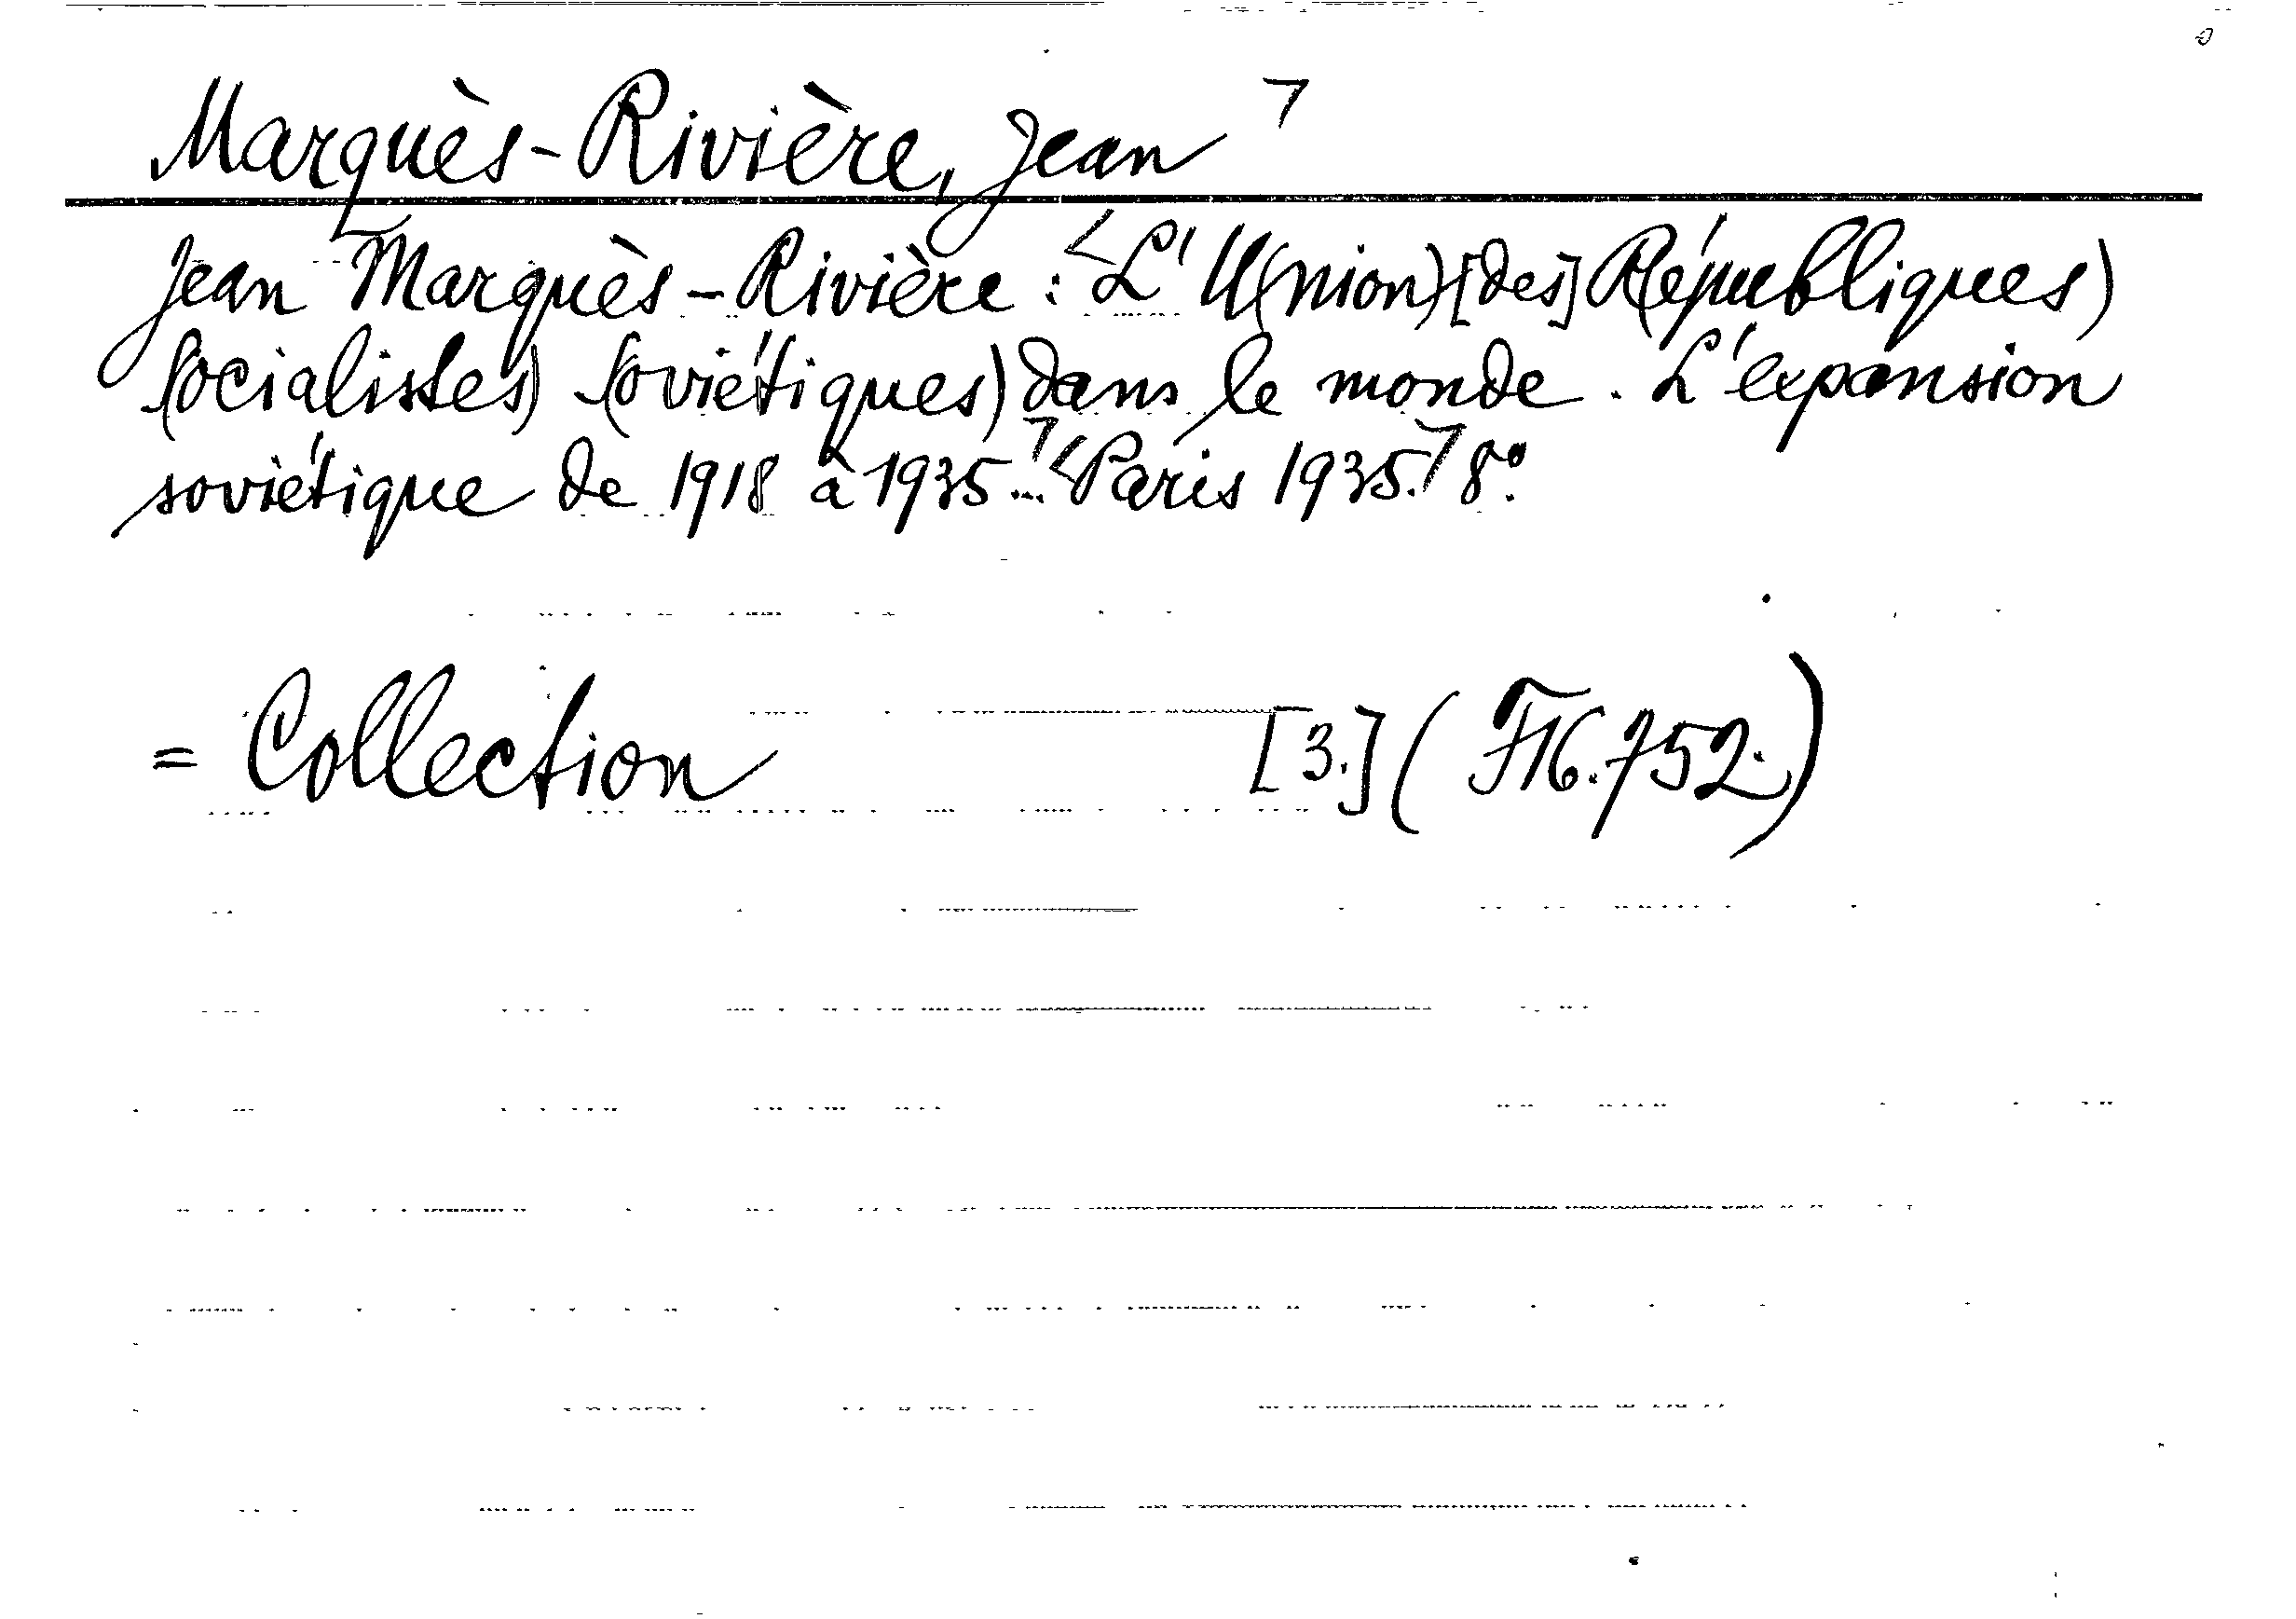 Marquès-Rivière, Jean ¬
Jean Marquès-Rivière: <L'U(nion) [des] R(épubliques)
S(ocialistes) S(oviétiques) dans le monde. L'expansion
soviétique de 1918 à 1935...¬ <Paris 1935.¬ 8°.
= Collection [3.] (F16.752.)